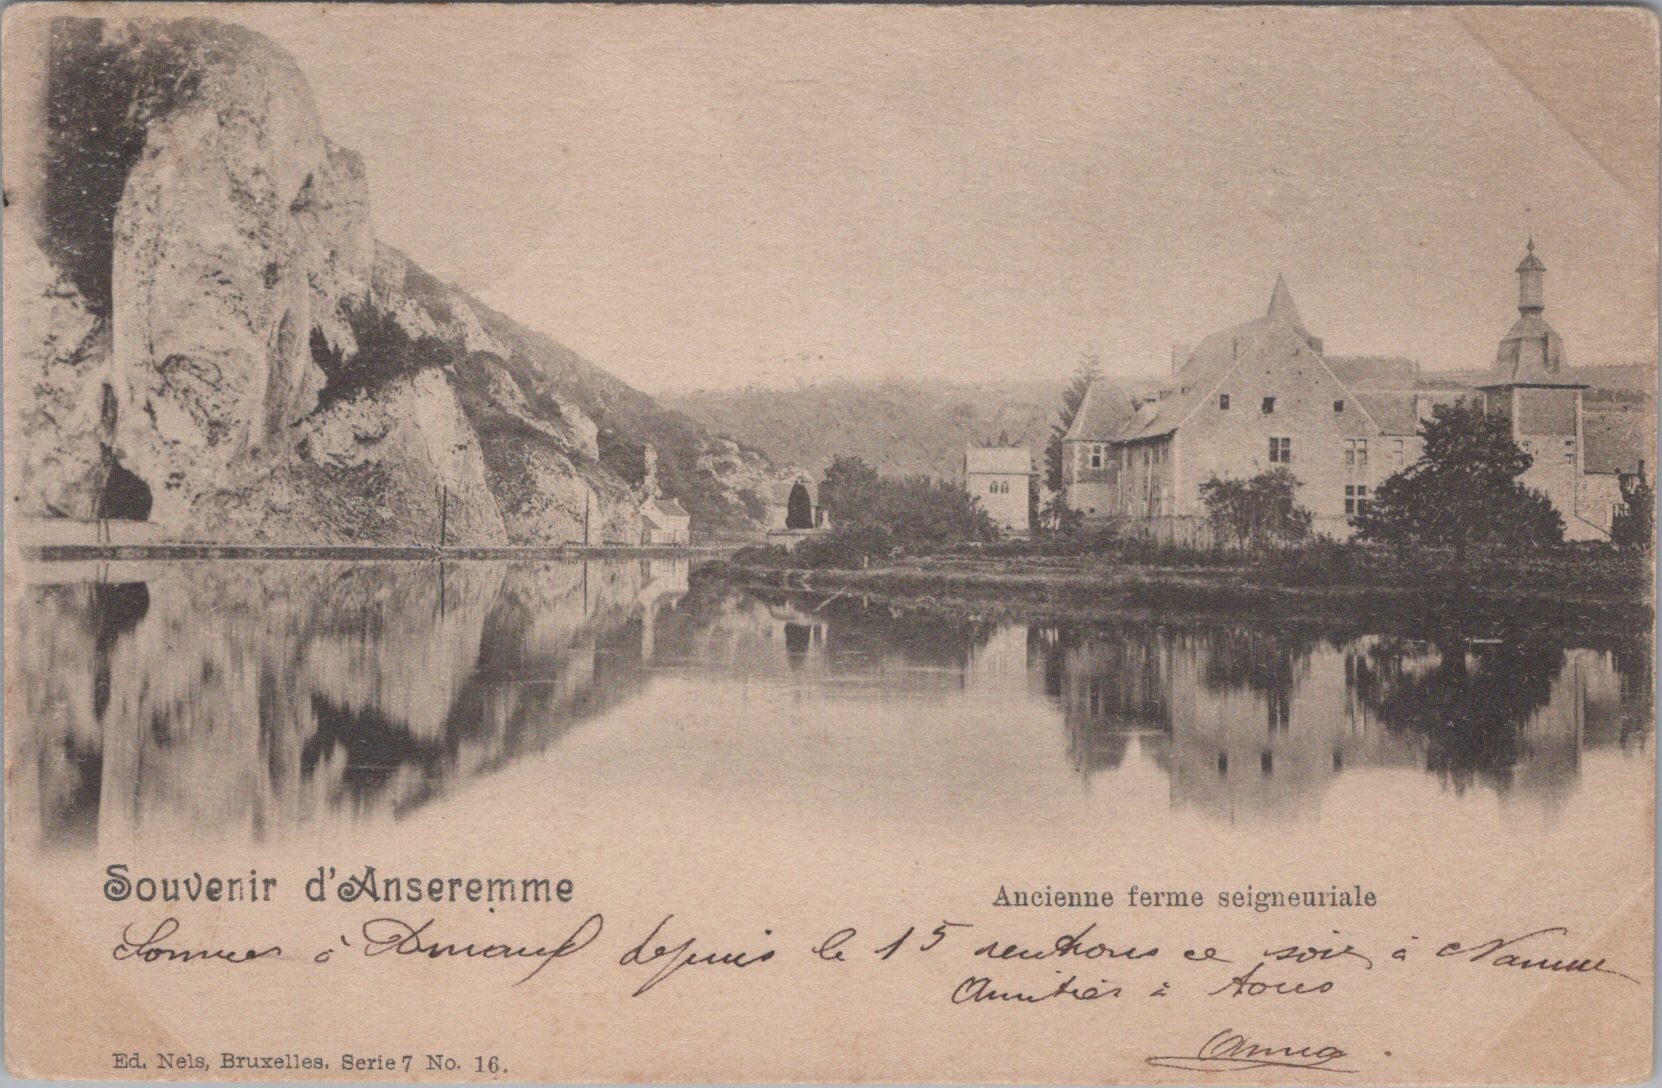 Souvenir d'Anseremme
Ancienne ferme seigneuriale
Sommes à Dinant depuis le 15 rentrons ce soir à Namur
Amitiés à tous
Anna
Ed. Nels, Bruxelles. Serie 7 No. 16.